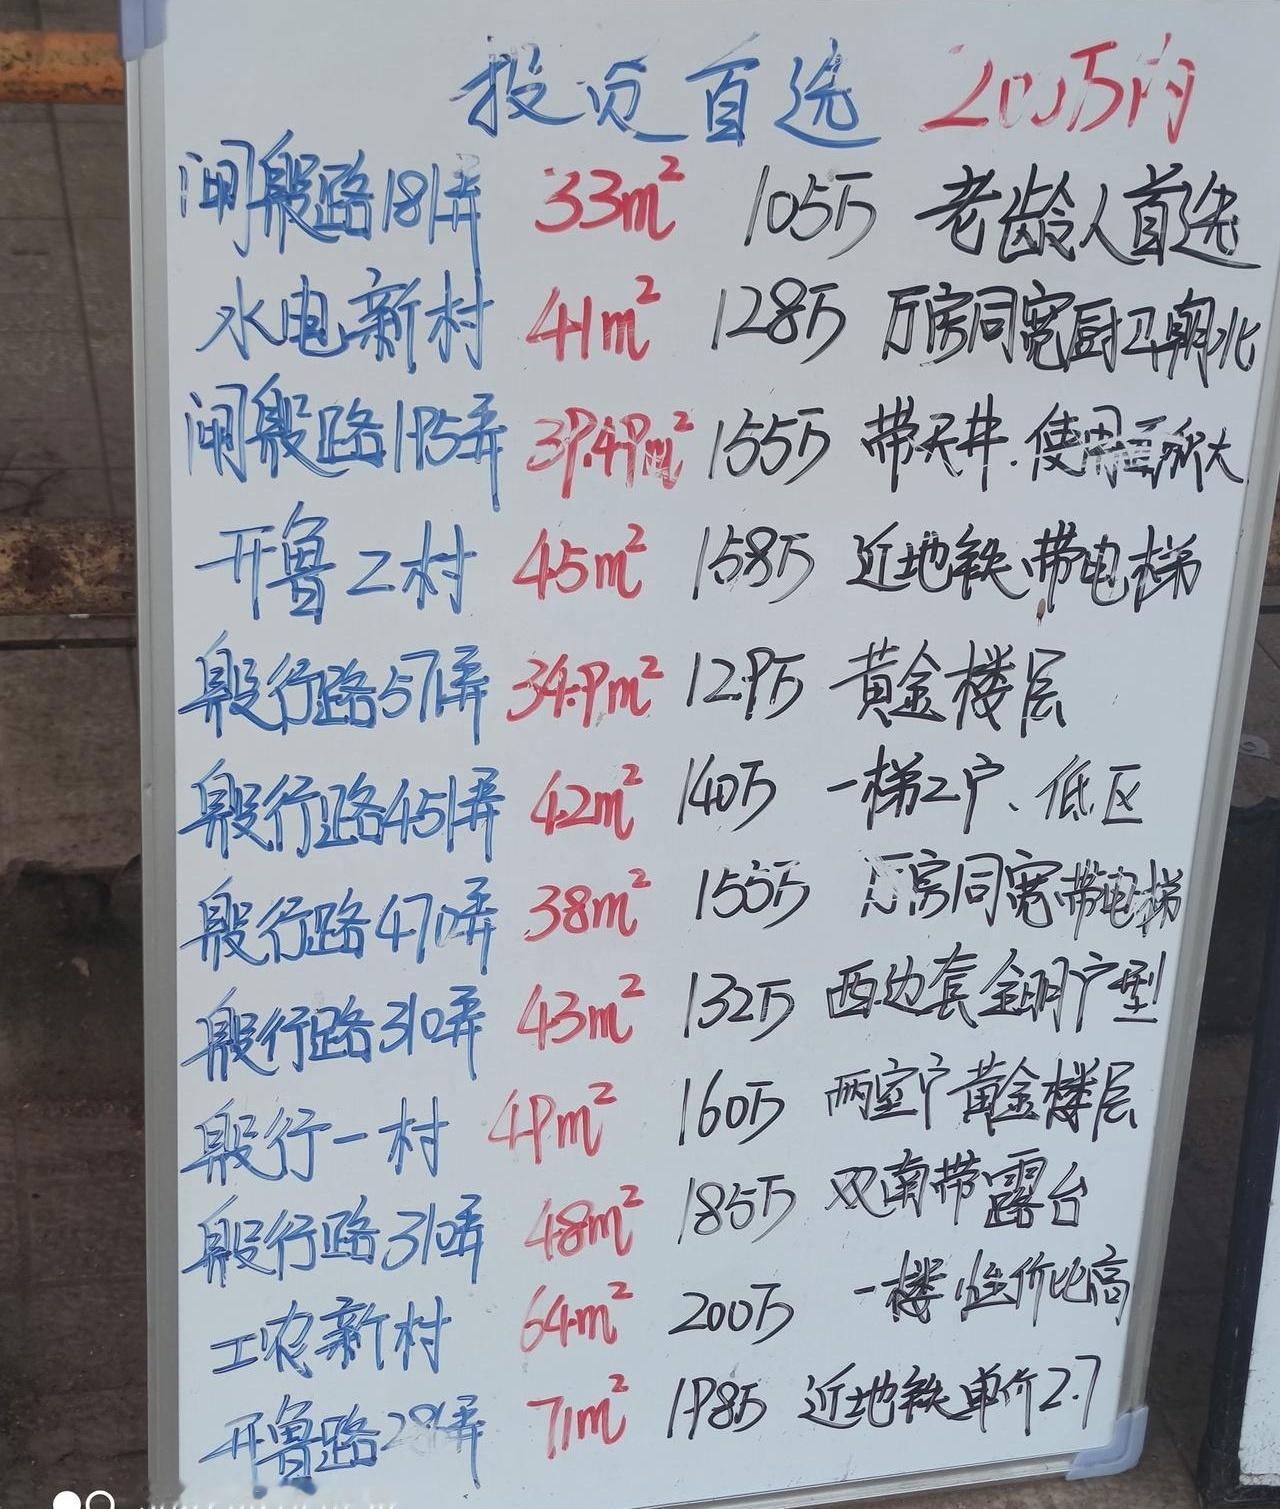 投资首选 200万内
闸殷路181弄 33m² 105万 老龄人首选
水电新村 41m² 128万 厅房同宽厨卫朝北
闸殷路195弄 39.49m² 155万 带天井.使用面积大
开鲁二村 45m² 158万 近地铁.带电梯
殷行路571弄 34.9m² 129万 黄金楼层
殷行路451弄 42m² 140万 一梯2户、低区
殷行路470弄 38m² 155万 厅房同宽带电梯
殷行路310弄 43m² 132万 西边套全明户型
殷行一村 49m² 160万 两室户黄金楼层
殷行路310弄 48m² 185万 双南带露台
工农新村 64m² 200万 一楼性价比高
开鲁路281弄 71m² 198万 近地铁单价2.7